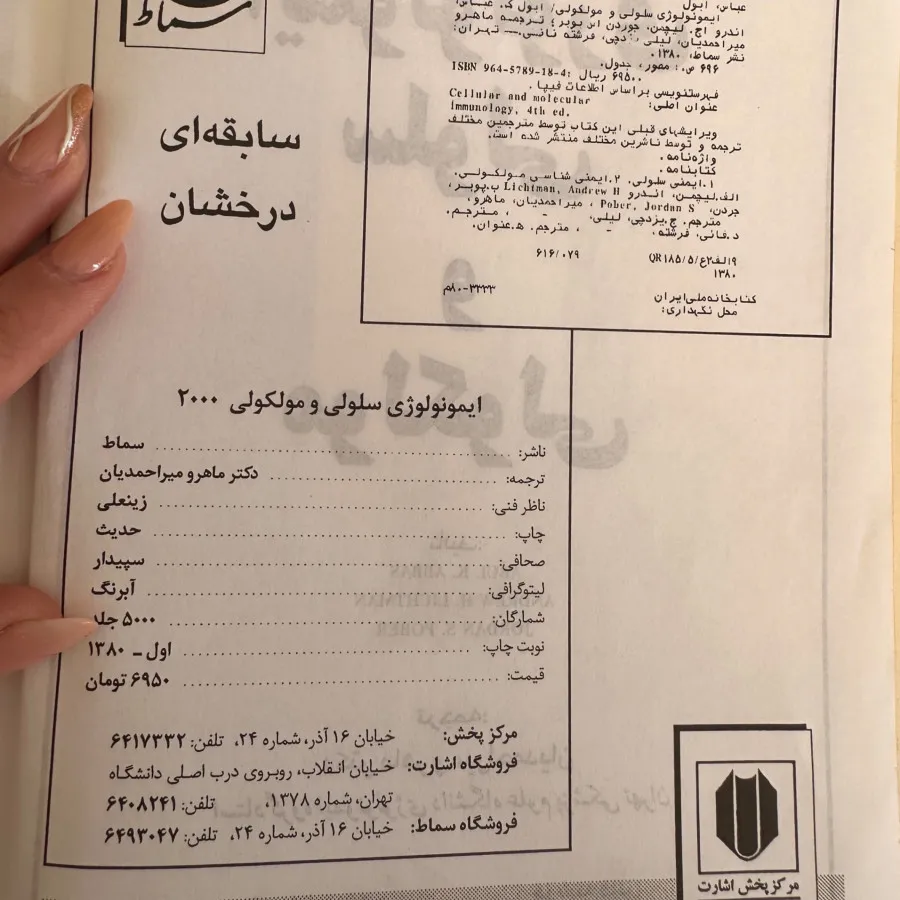 سماط
سابقه‌ای
درخشان
عباس، ابول
ایمونولوژی سلولی و مولکولی/ ابول ک. عباس،
اندرو اچ. لیچمن، جوردن اس پوبر؛ ترجمه ماهرو
میراحمدیان، لیلی یزدچی، فرشته فانسی.ـــ تهران:
نشر سماط، ۱۳۸۰.
۶۹۶ ص.: مصور، جدول.
ISBN 964-5789-18-4: ۶۹۵۰۰ ریال
فهرستنویسی براساس اطلاعات فیپا.
عنوان اصلی: Cellular and molecular
immunology, 4th ed.
ویرایشهای قبلی این کتاب توسط مترجمین مختلف
ترجمه و توسط ناشرین مختلف منتشر شده است.
واژه‌نامه.
کتابنامه.
۱.ایمنی سلولی. ۲.ایمنی شناسی مولکولی.
الف.لیچمن، اندرو Lichtman, Andrew H ب.پوبر،
جردن، Pober, Jordan S، میراحمدیان، ماهرو،
مترجم. ج.یزدچی، لیلی، - ، مترجم.
د.فانی، فرشته، - ، مترجم. ه.عنوان.
۹الف۲ع/۵/QR۱۸۵ ۶۱۶/۰۷۹
۱۳۸۰
کتابخانه‌ملی‌ایران ۸۰-۳۳۳۳م
محل نگهداری:
ایمونولوژی سلولی و مولکولی ۲۰۰۰
ناشر: سماط
ترجمه: دکتر ماهرو میراحمدیان
ناظر فنی: زینعلی
چاپ: حدیث
صحافی: سپیدار
لیتوگرافی: آبرنگ
شمارگان: ۵۰۰۰ جلد
نوبت چاپ: اول ـ ۱۳۸۰
قیمت: ۶۹۵۰ تومان
مرکز پخش: خیابان ۱۶ آذر، شماره ۲۴، تلفن: ۶۴۱۷۳۳۲
فروشگاه اشارت: خیابان انقلاب، روبروی درب اصلی دانشگاه
تهران، شماره ۱۳۷۸، تلفن: ۶۴۰۸۲۴۱
فروشگاه سماط: خیابان ۱۶ آذر، شماره ۲۴، تلفن: ۶۴۹۳۰۴۷
مرکز پخش اشارت